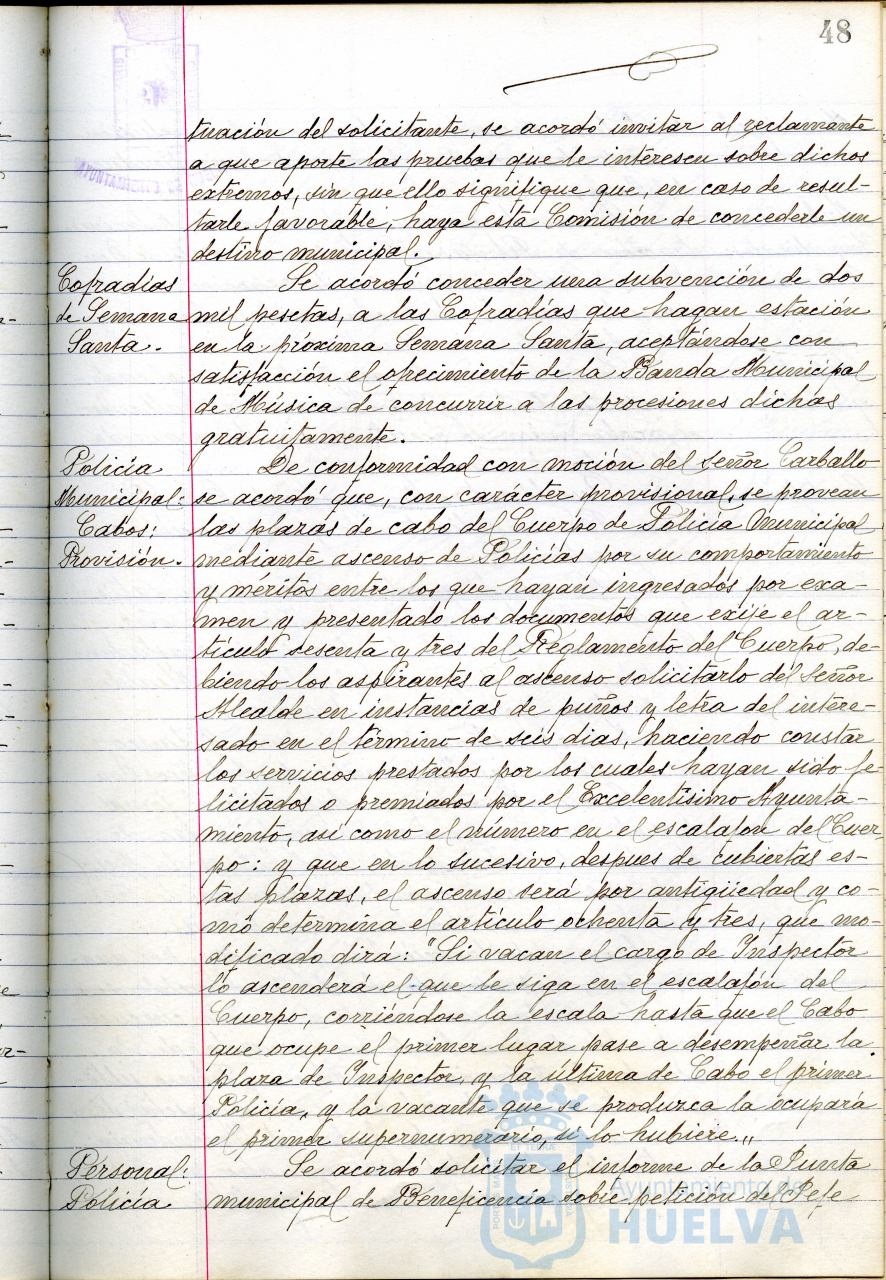 48
AYUNTAMIENTO
tuación del solicitante, se acordó invitar al reclamante
a que aporte las pruebas que le interesen sobre dichos
extremos, sin que ello signifique que, en caso de resul-
tarle favorable, haya esta Comisión de concederle un
destino municipal.
Cofradías
de Semana
Santa.
Se acordó conceder una subvención de dos
mil pesetas, a las Cofradías que hagan estación
en la próxima Semana Santa, aceptándose con
satisfacción el ofrecimiento de la Banda Municipal
de Música de concurrir a las procesiones dichas
gratuitamente.
Policía
Municipal:
Cabos:
Provisión.
De conformidad con moción del señor Carballo
se acordó que, con carácter provisional, se provean
las plazas de cabo del Cuerpo de Policía Municipal
mediante ascenso de Policías por su comportamiento
y méritos entre los que hayan ingresados por exa-
men y presentado los documentos que exije el ar-
tículo sesenta y tres del Reglamento del Cuerpo, de-
biendo los aspirantes al ascenso solicitarlo del Señor
Alcalde en instancias de puños y letra del intere-
sado en el término de seis dias, haciendo constar
los servicios prestados por los cuales hayan sido fe-
licitados o premiados por el Excelentísimo Ayunta-
miento, así como el número en el escalafon del Cuer-
po: y que en lo sucesivo, despues de cubiertas es-
tas plazas, el ascenso será por antigüedad y co-
mo determina el artículo ochenta y tres, que mo-
dificado dirá: "Si vacan el cargo de Inspector
lo ascenderá el que le siga en el escalafón del
Cuerpo, corriéndose la escala hasta que el Cabo
que ocupe el primer lugar pase a desempeñar la
plaza de Inspector, y la última de Cabo el primer
Policía, y la vacante que se produzca la ocupará
el primer supernumerario, si lo hubiere.„
Personal:
Policía
Se acordó solicitar el informe de la Junta
municipal de Beneficencia sobre petición del Jefe
Ayuntamiento de
HUELVA